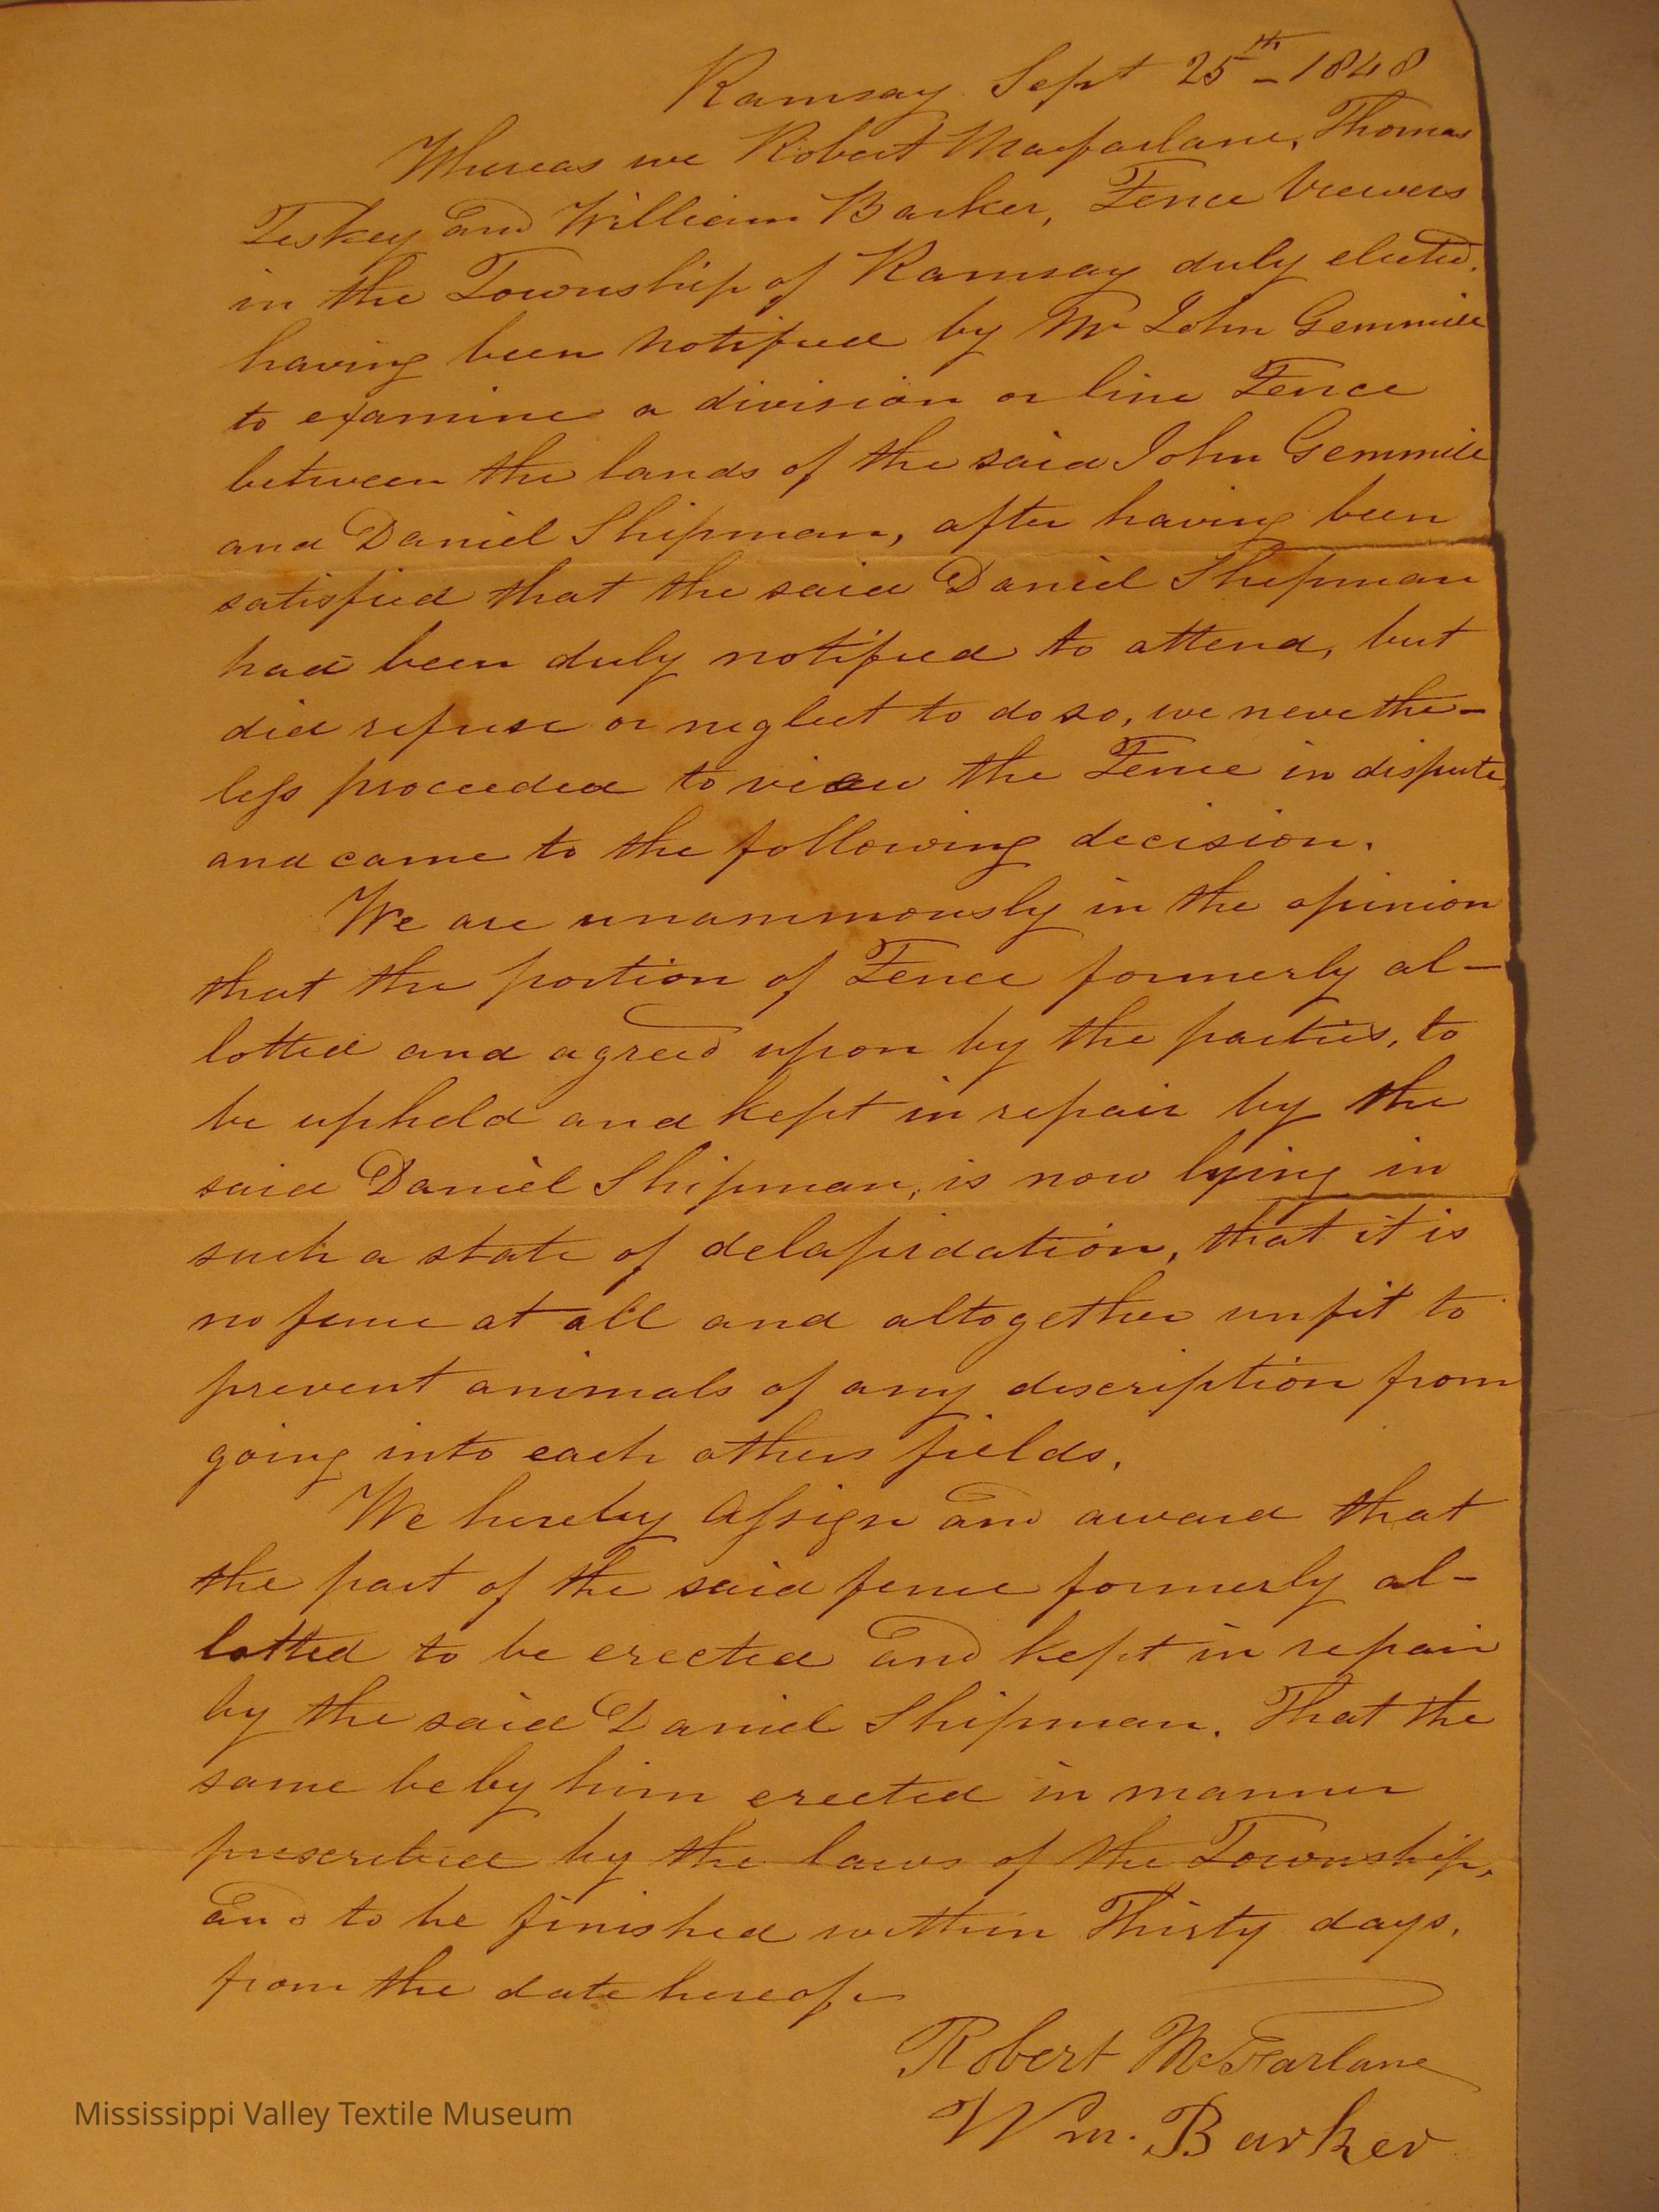 Ramsay Sept 25th - 1848
Whereas we Robert Macfarlane, Thomas
Teskey and William Barker, Fence Viewers
in the Township of Ramsay duly elected,
having been notified by Mr John Gemmill
to examine a division or line Fence
between the lands of the said John Gemmill
and Daniel Shipman, after having been
satisfied that the said Daniel Shipman
had been duly notified to attend, but
did refuse or neglect to do so, we nevethe-
less proceeded to view the Fence in dispute,
and came to the following decision.
We are unammously in the opinion
that the portion of Fence formerly al-
lotted and agreed upon by the parties, to
be upheld and kept in repair by the
said Daniel Shipman, is now lying in
such a state of delapidation, that it is
no fence at all and altogether unfit to
prevent animals of any discription from
going into each others fields.
We hereby Assign and award that
the part of the said fence formerly al-
lotted to be erected and kept in repair
by the said Daniel Shipman. That the
same be by him erected in manner
prescribed by the laws of the Township,
and to be finished within Thirty days,
from the date hereof.
Robert McFarlane
Wm. Barker
Mississippi Valley Textile Museum